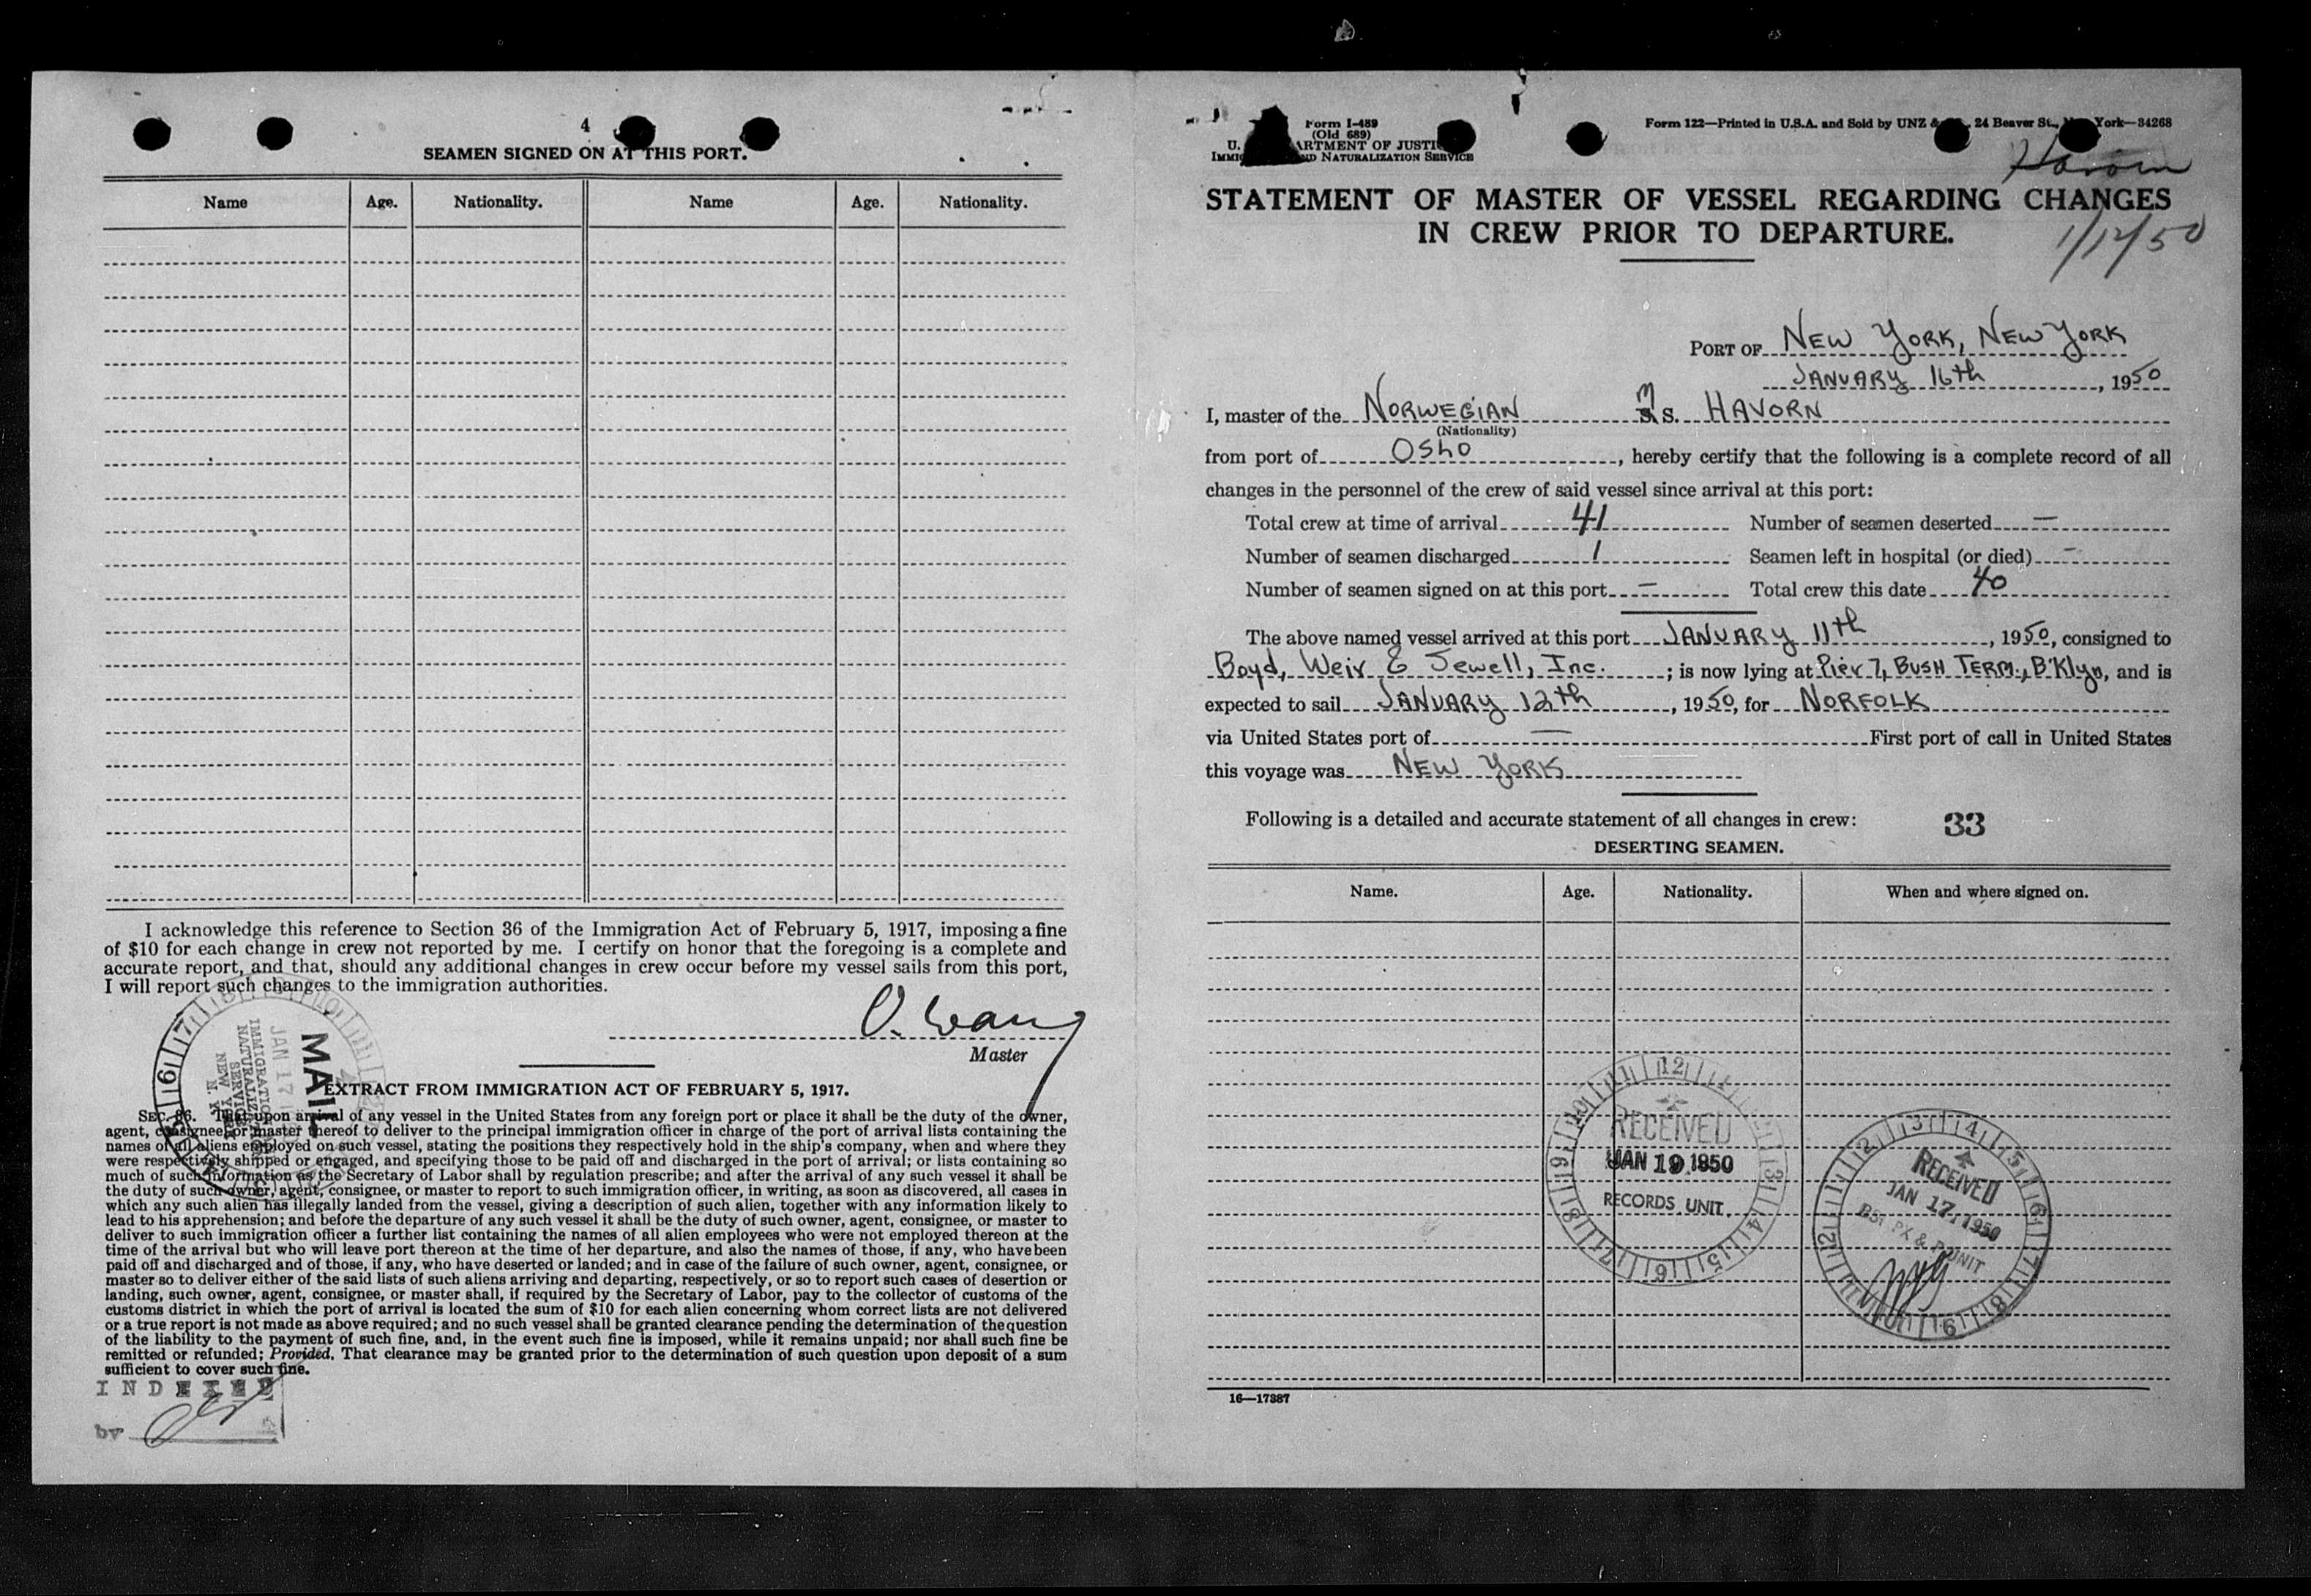 4
SEAMEN SIGNED ON AT THIS PORT.
Name Age. Nationality. Name Age. Nationality.
I acknowledge this reference to Section 36 of the Immigration Act of February 5, 1917, imposing a fine
of $10 for each change in crew not reported by me. I certify on honor that the foregoing is a complete and
accurate report, and that, should any additional changes in crew occur before my vessel sails from this port,
I will report such changes to the immigration authorities.
Master
MAIL
JAN 17
IMMIGRATION
NATURALIZATION
SERVICE
NEW YORK
N. Y.
EXTRACT FROM IMMIGRATION ACT OF FEBRUARY 5, 1917.
SEC. 36. That upon arrival of any vessel in the United States from any foreign port or place it shall be the duty of the owner,
agent, consignee, or master thereof to deliver to the principal immigration officer in charge of the port of arrival lists containing the
names of all aliens employed on such vessel, stating the positions they respectively hold in the ship's company, when and where they
were respectively shipped or engaged, and specifying those to be paid off and discharged in the port of arrival; or lists containing so
much of such information as the Secretary of Labor shall by regulation prescribe; and after the arrival of any such vessel it shall be
the duty of such owner, agent, consignee, or master to report to such immigration officer, in writing, as soon as discovered, all cases in
which any such alien has illegally landed from the vessel, giving a description of such alien, together with any information likely to
lead to his apprehension; and before the departure of any such vessel it shall be the duty of such owner, agent, consignee, or master to
deliver to such immigration officer a further list containing the names of all alien employees who were not employed thereon at the
time of the arrival but who will leave port thereon at the time of her departure, and also the names of those, if any, who have been
paid off and discharged and of those, if any, who have deserted or landed; and in case of the failure of such owner, agent, consignee, or
master so to deliver either of the said lists of such aliens arriving and departing, respectively, or so to report such cases of desertion or
landing, such owner, agent, consignee, or master shall, if required by the Secretary of Labor, pay to the collector of customs of the
customs district in which the port of arrival is located the sum of $10 for each alien concerning whom correct lists are not delivered
or a true report is not made as above required; and no such vessel shall be granted clearance pending the determination of the question
of the liability to the payment of such fine, and, in the event such fine is imposed, while it remains unpaid; nor shall such fine be
remitted or refunded; Provided, That clearance may be granted prior to the determination of such question upon deposit of a sum
sufficient to cover such fine.
INDEXED
by
Form I-489
(Old 689)
U. ARTMENT OF JUSTI
IMMIG ND NATURALIZATION SERVICE
Form 122—Printed in U.S.A. and Sold by UNZ & 24 Beaver St., York—34268
Havorn
STATEMENT OF MASTER OF VESSEL REGARDING CHANGES
IN CREW PRIOR TO DEPARTURE.
1/12/50
PORT OF NEW YORK, NEW YORK
JANUARY 16th, 1950
I, master of the NORWEGIAN M S. HAVORN
(Nationality)
from port of OSLO, hereby certify that the following is a complete record of all
changes in the personnel of the crew of said vessel since arrival at this port:
Total crew at time of arrival 41 Number of seamen deserted —
Number of seamen discharged 1 Seamen left in hospital (or died) —
Number of seamen signed on at this port — Total crew this date 40
The above named vessel arrived at this port JANUARY 11th, 1950, consigned to
Boyd, Weir & Sewell, Inc.; is now lying at Pier 7, BUSH TERM., B'Klyn, and is
expected to sail JANUARY 12th, 1950, for NORFOLK
via United States port of — First port of call in United States
this voyage was NEW YORK
Following is a detailed and accurate statement of all changes in crew: 33
DESERTING SEAMEN.
Name. Age. Nationality. When and where signed on.
RECEIVED
JAN 19 1950
RECORDS UNIT.
RECEIVED
JAN 17, 1950
16—17387